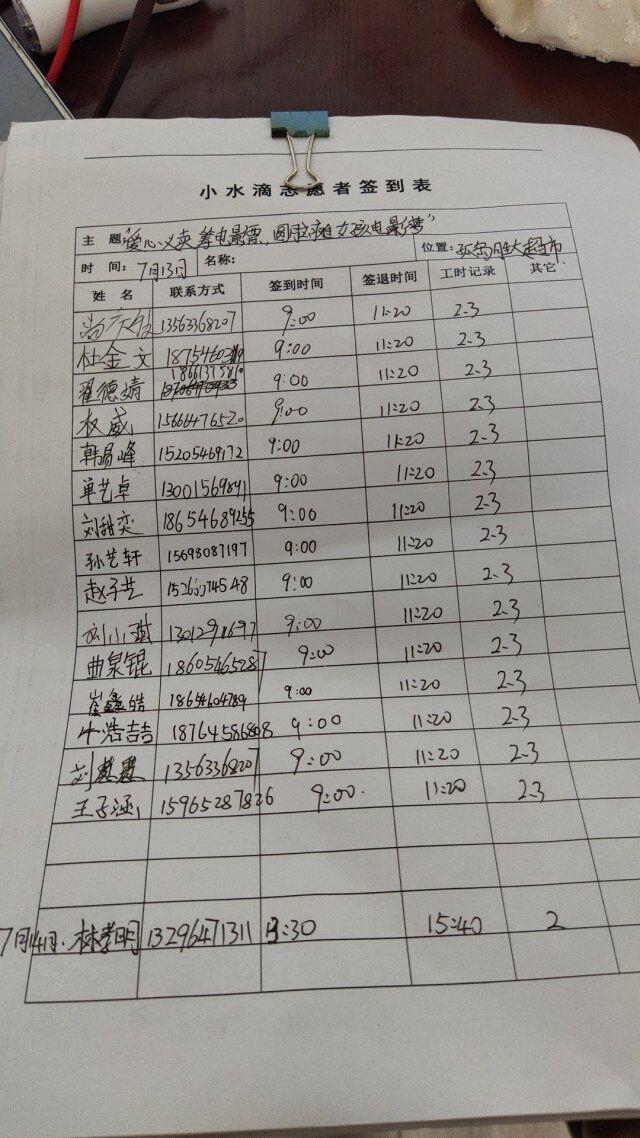 小水滴志愿者签到表
主 题:"爱心义卖 筹电影票、圆脑瘫女孩电影梦"
时 间: 7月13日 名称: 位置: 孤岛胜大超市
姓 名 联系方式 签到时间 签退时间 工时记录 其它
13563368207 9:00 11:20 2.3
杜金文 9:00 11:20 2.3
翟德婧 9:00 11:20 2.3
权威 15666476520 9:00 11:20 2.3
韩易峰 15205469172 9:00 11:20 2.3
单艺卓 13001569891 9:00 11:20 2.3
刘甜奕 18654689255 9:00 11:20 2.3
孙艺轩 15698087197 9:00 11:20 2.3
赵子艺 9:00 11:20 2.3
刘小 9:00 11:20 2.3
曲泉锟 18605465287 9:00 11:20 2.3
崔鑫皓 18654604789 9:00 11:20 2.3
牛浩喆 18764586808 9:00 11:20 2.3
刘慧慧 13563368207 9:00 11:20 2.3
王子涵 15965287826 9:00. 11:20 2.3
7月14日. 林孝明 13296471311 13:30 15:40 2